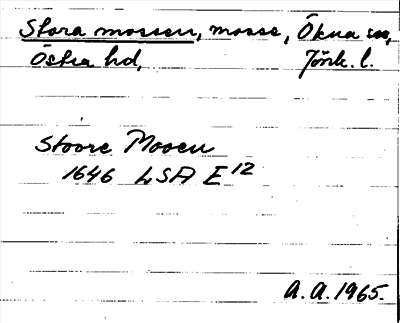 Stora mossen, mosse, Ökna sn,
Östra hd, Jönk. l.
Stoore Mosen
1646 LSA E12
A.A. 1965.